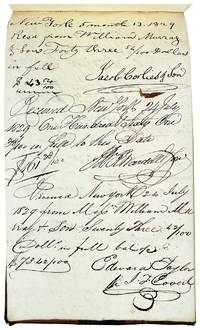 New York 5 month 13. 1829
Recd from William Murray
& Son Forty three 42/100 Dollars
in full
$ 43 42/100
Jacob Corlies & Son
Received New York 24 July
1829 One Hundred Sixty One
in full to this Date
$161 38/100
Received New York 24 July
1829 from Mess William Mur
ray & Son Seventy Three 42/100
Doll in full
$73.42/100
Edward Taylor